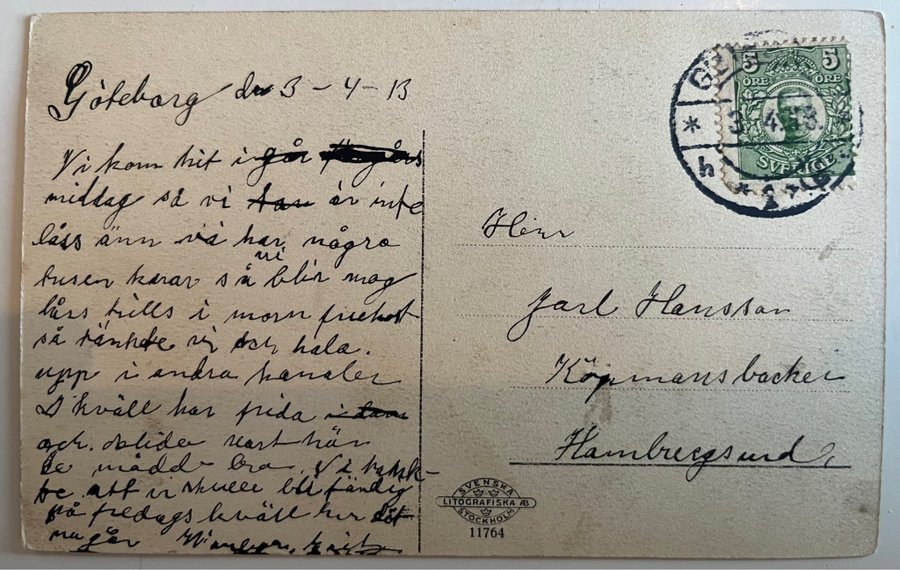 Göteborg d 3 - 4 - 13
Vi kom hit i går
middag så vi är inte
låss änn vi har några
tusen karar så vi blir nog
lårs tills i morn
så tänkte vi och hala
upp i andra kanaler
I kväll har frida
ock varit här
de mådde bra Vi
att vi skulle bli färdig
på fredags kväll
Herr
Jarl Hansson
Köpmansbacken
Hamburgsund
5 5
ÖRE ÖRE
SVERIGE
3. 4. 13.
SVENSKA
LITOGRAFISKA AB
STOCKHOLM
11764